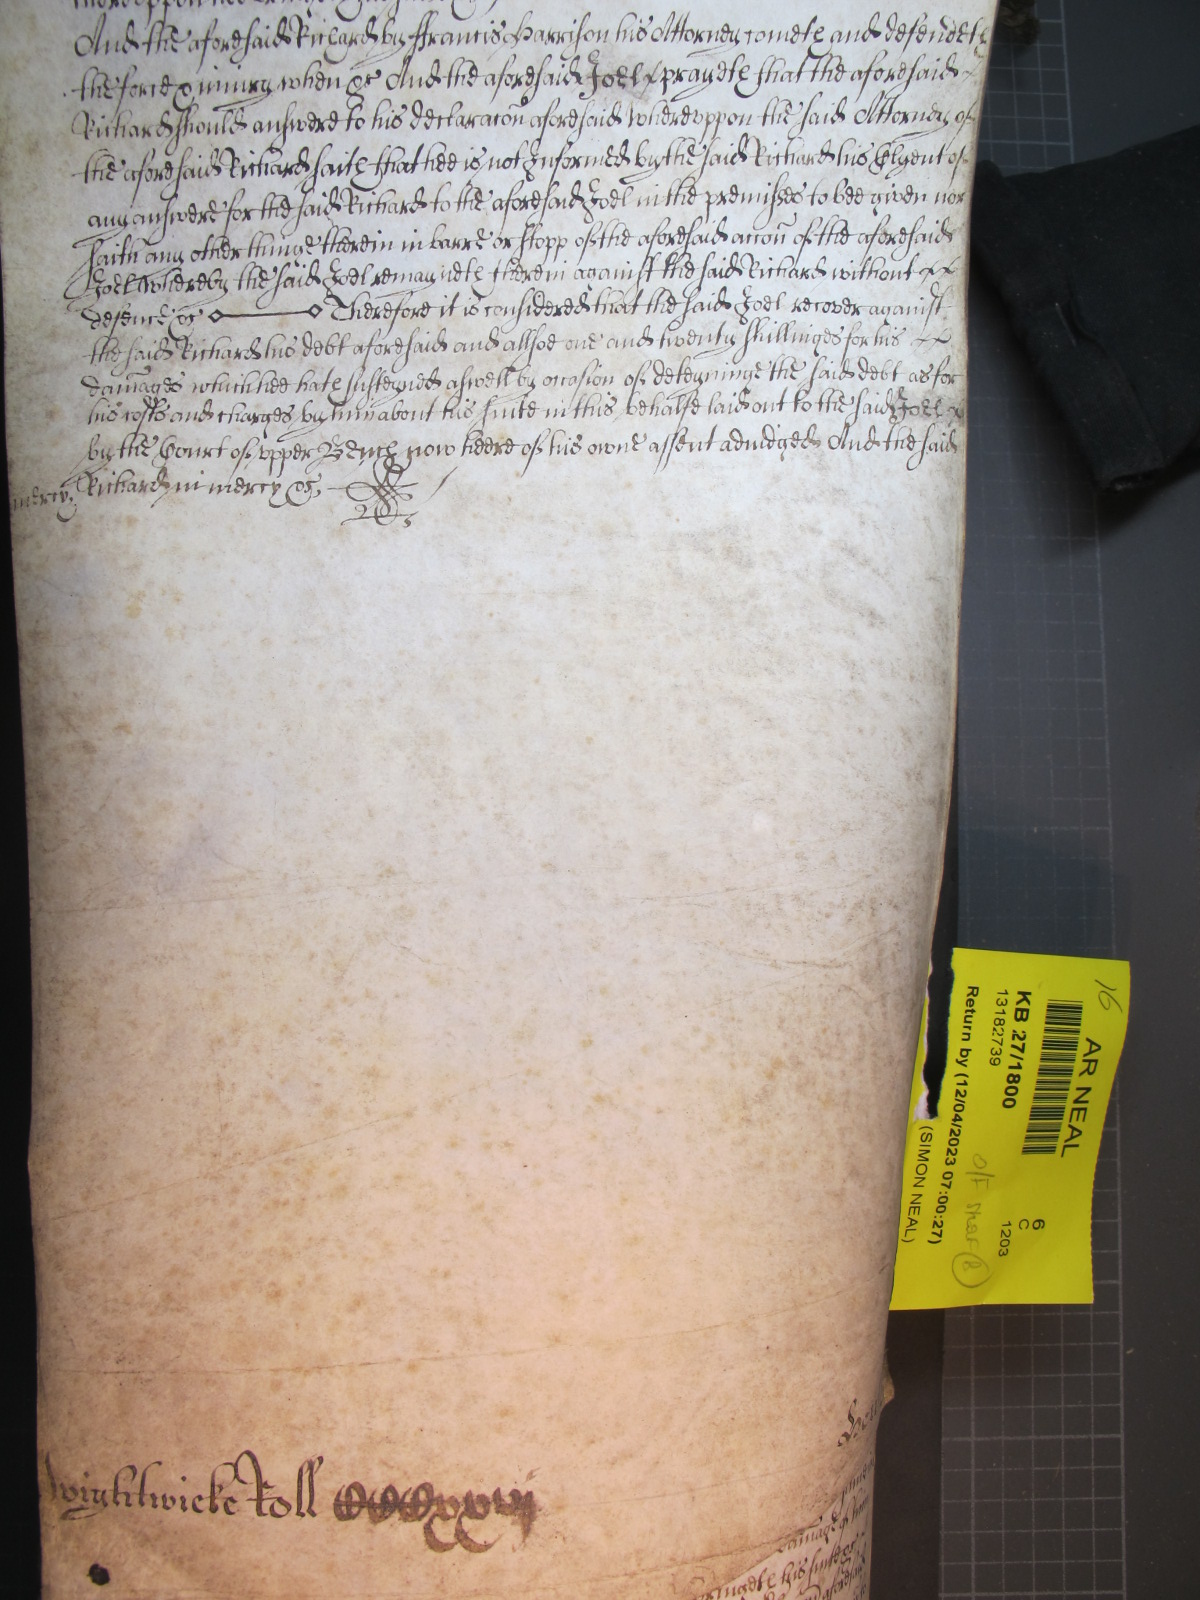 And the aforesaid Richard by Francis Harrison his Attorney cometh and defendeth
the force & iniury when &c And the aforesaid Joel prayeth that the aforesaid
Richard should answere to his declaracon aforesaid Wherevppon the said Attorney of
the aforesaid Richard saith that hee is not Informed by the said Richard his Clyent of
any answere for the said Richard to the aforesaid Joel in the premisses to bee given nor
saith any other thinge therein in barre or stopp of the aforesaid accon of the aforesaid
Joel Whereby the said Joel remayneth therein against the said Richard without
defence &c Therefore it is considered that the said Joel recover against
the said Richard his debt aforesaid and allsoe one and twenty shillinges for his
damages which hee hath susteyned aswell by occasion of deteyninge the said debt as for
his costs and charges by him about his suite in this behalfe laid out to the said Joel
by the Court of vpper Bench now heere of his owne assent adiudged And the said
mercy Richard in mercy &c
Wightwicke Roll
damage of him
his suite &c
AR NEAL
16
KB 27/1800
13182739
Return by (12/04/2023 07:00:27)
(SIMON NEAL)
6
C
1203
O/F
8